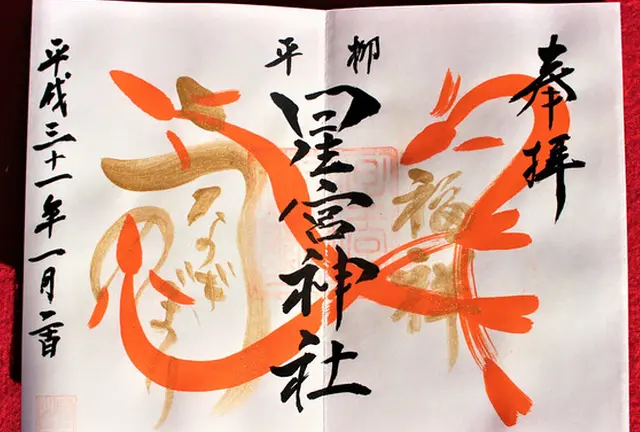 奉拝
平柳
星宮神社
福
うなぎ
のぼり
平成三十一年一月